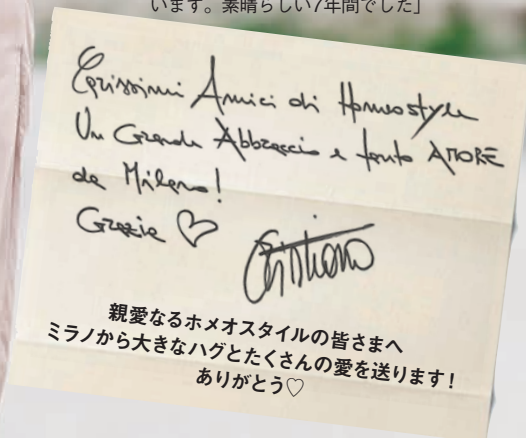 います。素晴らしい7年間でした」
Carissimi Amici di Homeostyle
Un Grande Abbraccio e tanto AMORE
da Milano!
Grazie ♡
Cristiano
親愛なるホメオスタイルの皆さまへ
ミラノから大きなハグとたくさんの愛を送ります!
ありがとう♡